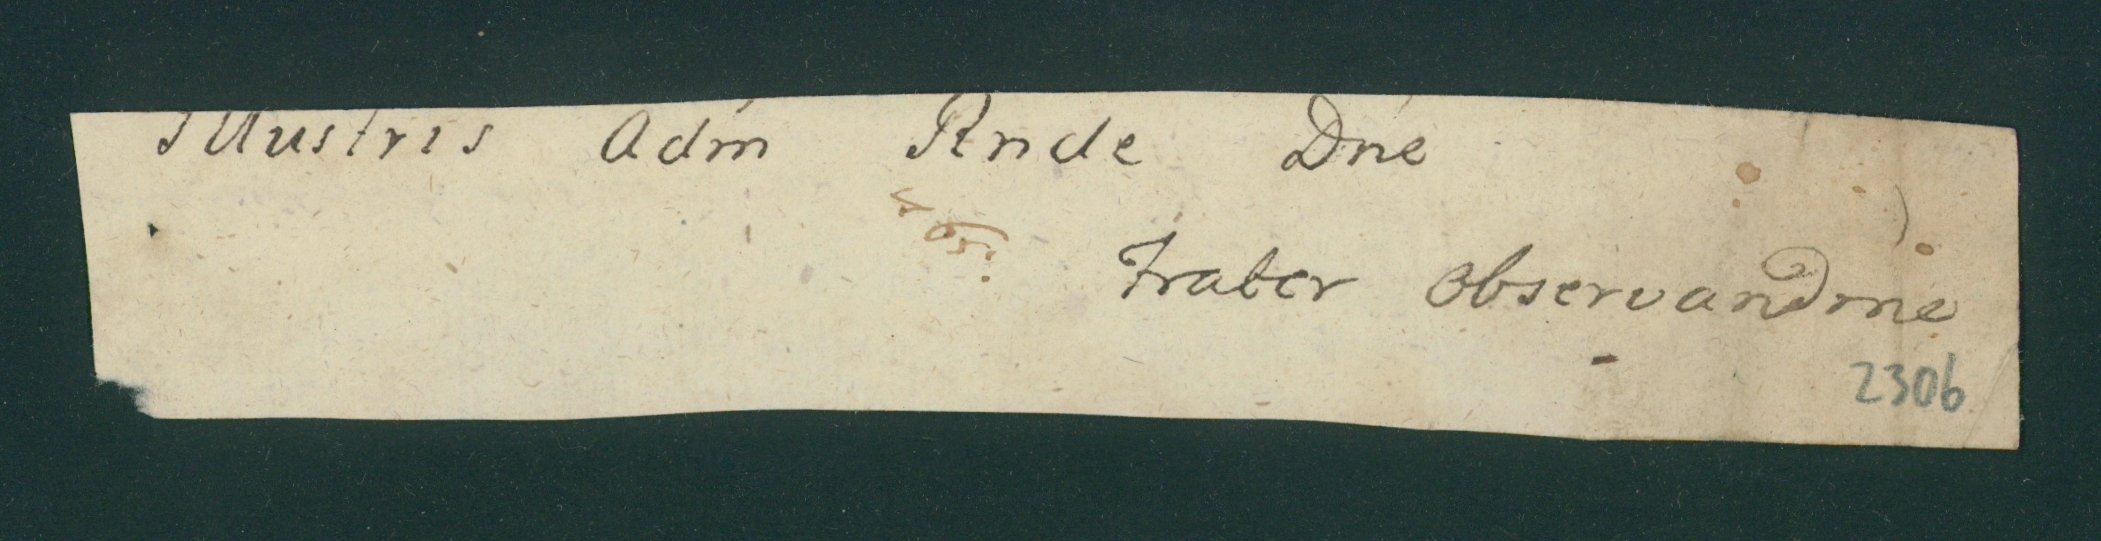 Illustris Adm Rnde Dne
Frater observandme
2306